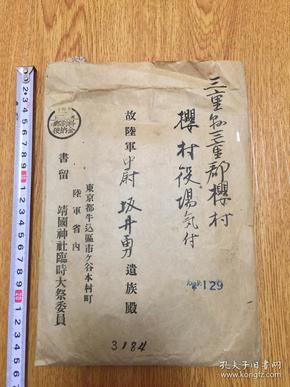 三重縣三重郡櫻村
櫻村役場気付
129
故陸軍中尉 坂井勇 遺族殿
東京都牛込區市ケ谷本村町
陸軍省内
書留 靖國神社臨時大祭委員
料金別納郵便
3184
孔夫子旧书网